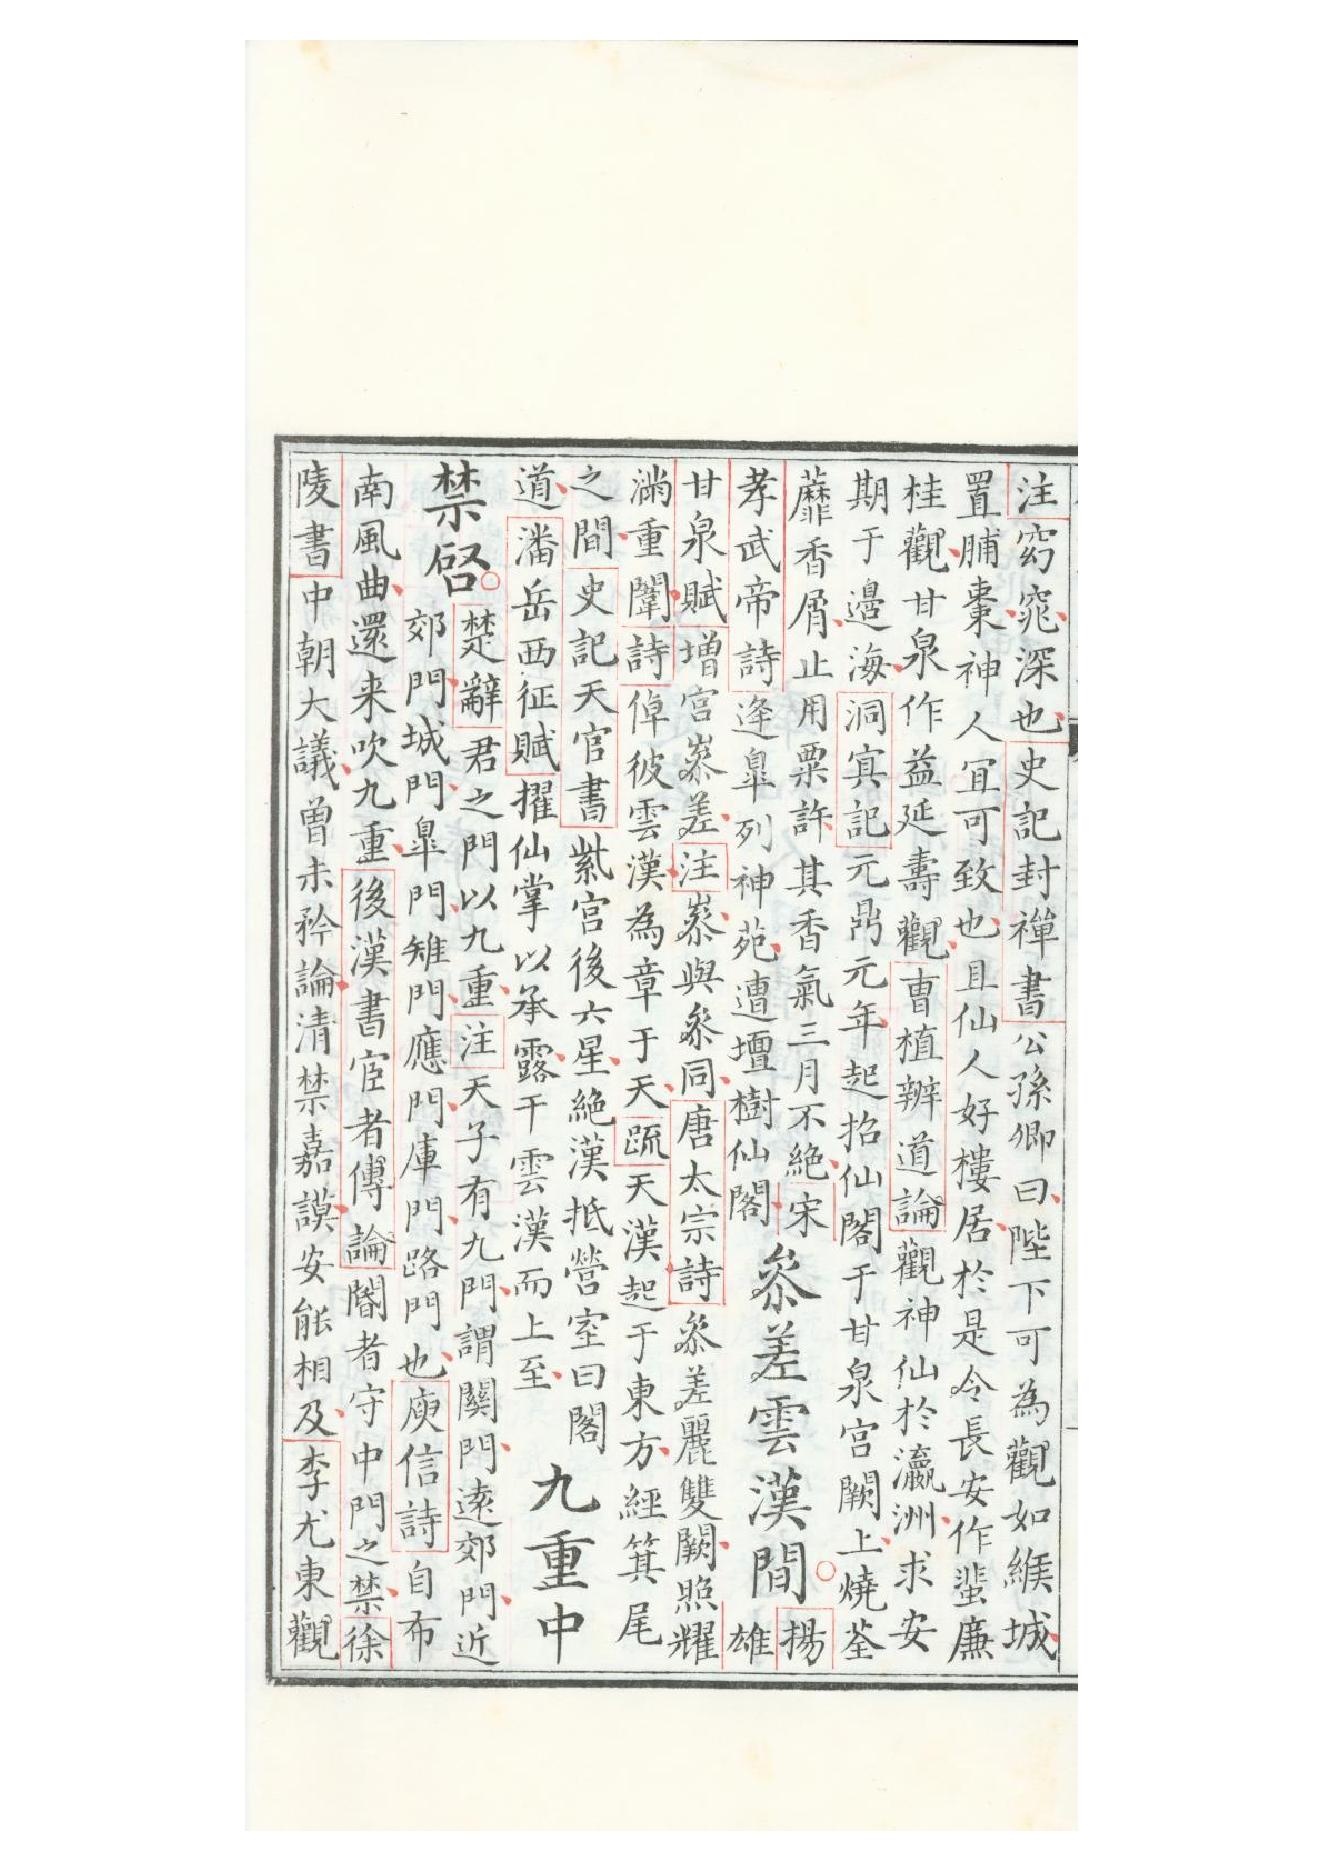 注窈窕深也史記封禪書公孫卿曰陛下可為觀如緱城
置脯棗神人宜可致也且仙人好樓居於是令長安作蜚廉
桂觀甘泉作益延壽觀曹植辨道論觀神仙於瀛洲求安
期于邊海洞寘記元鼎元年起招仙閣于甘泉宮闕上燒荃
蘼香屑止用粟許其香氣三月不絶宋
孝武帝詩逢臯列神苑遭壇樹仙閣
參差雲漢間
揚
雄
甘泉賦增宮嵾差注嵾與參同唐太宗詩參差麗雙闕照耀
滿重闈詩倬彼雲漢為章于天疏天漢起于東方經箕尾
之間史記天官書紫宮後六星絶漢抵營室曰閣
道潘岳西征賦擢仙掌以承露干雲漢而上至
九重中
禁啓
楚辭君之門以九重注天子有九門謂關門逺郊門近
郊門城門臯門雉門應門庫門路門也庾信詩自布
南風曲還来吹九重後漢書宦者傳論閽者守中門之禁徐
陵書中朝大議曽未矜論清禁嘉謨安能相及李尤東觀